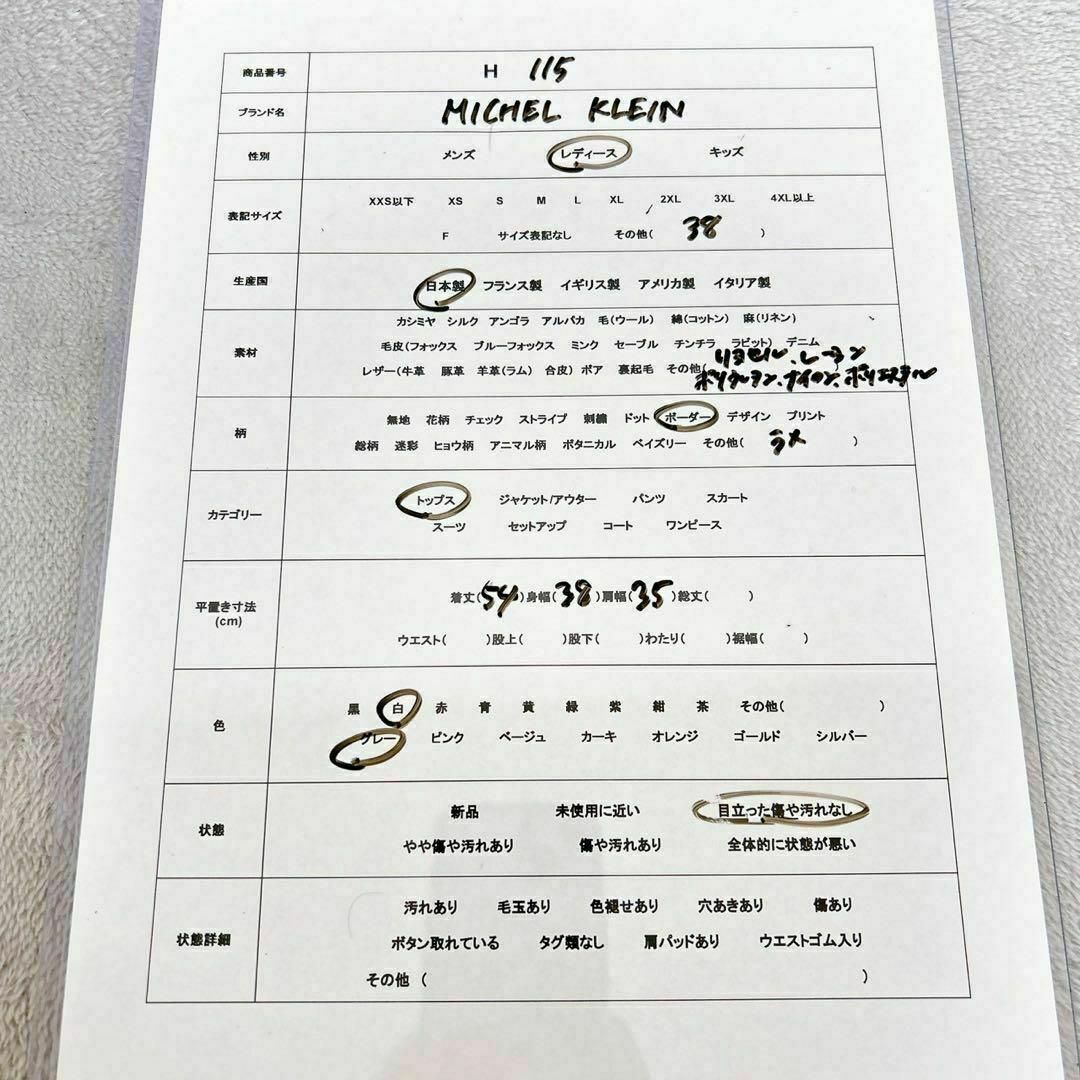 商品番号 H 115
ブランド名 MICHEL KLEIN
性別 メンズ レディース キッズ
表記サイズ
XXS以下 XS S M L XL 2XL 3XL 4XL以上
F サイズ表記なし その他( 38 )
生産国 日本製 フランス製 イギリス製 アメリカ製 イタリア製
素材
カシミヤ シルク アンゴラ アルパカ 毛(ウール) 綿(コットン) 麻(リネン)
毛皮(フォックス ブルーフォックス ミンク セーブル チンチラ ラビット) デニム
レザー(牛革 豚革 羊革(ラム) 合皮) ボア 裏起毛 その他( リヨセル、レーヨン
ポリウレタン、ナイロン、ポリエステル
柄
無地 花柄 チェック ストライプ 刺繍 ドット ボーダー デザイン プリント
総柄 迷彩 ヒョウ柄 アニマル柄 ボタニカル ペイズリー その他( ラメ )
カテゴリー
トップス ジャケット/アウター パンツ スカート
スーツ セットアップ コート ワンピース
平置き寸法
(cm)
着丈(54)身幅(38)肩幅(35)総丈( )
ウエスト( )股上( )股下( )わたり( )裾幅( )
色
黒 白 赤 青 黄 緑 紫 紺 茶 その他( )
グレー ピンク ベージュ カーキ オレンジ ゴールド シルバー
状態
新品 未使用に近い 目立った傷や汚れなし
やや傷や汚れあり 傷や汚れあり 全体的に状態が悪い
状態詳細
汚れあり 毛玉あり 色褪せあり 穴あきあり 傷あり
ボタン取れている タグ類なし 肩パッドあり ウエストゴム入り
その他 ( )